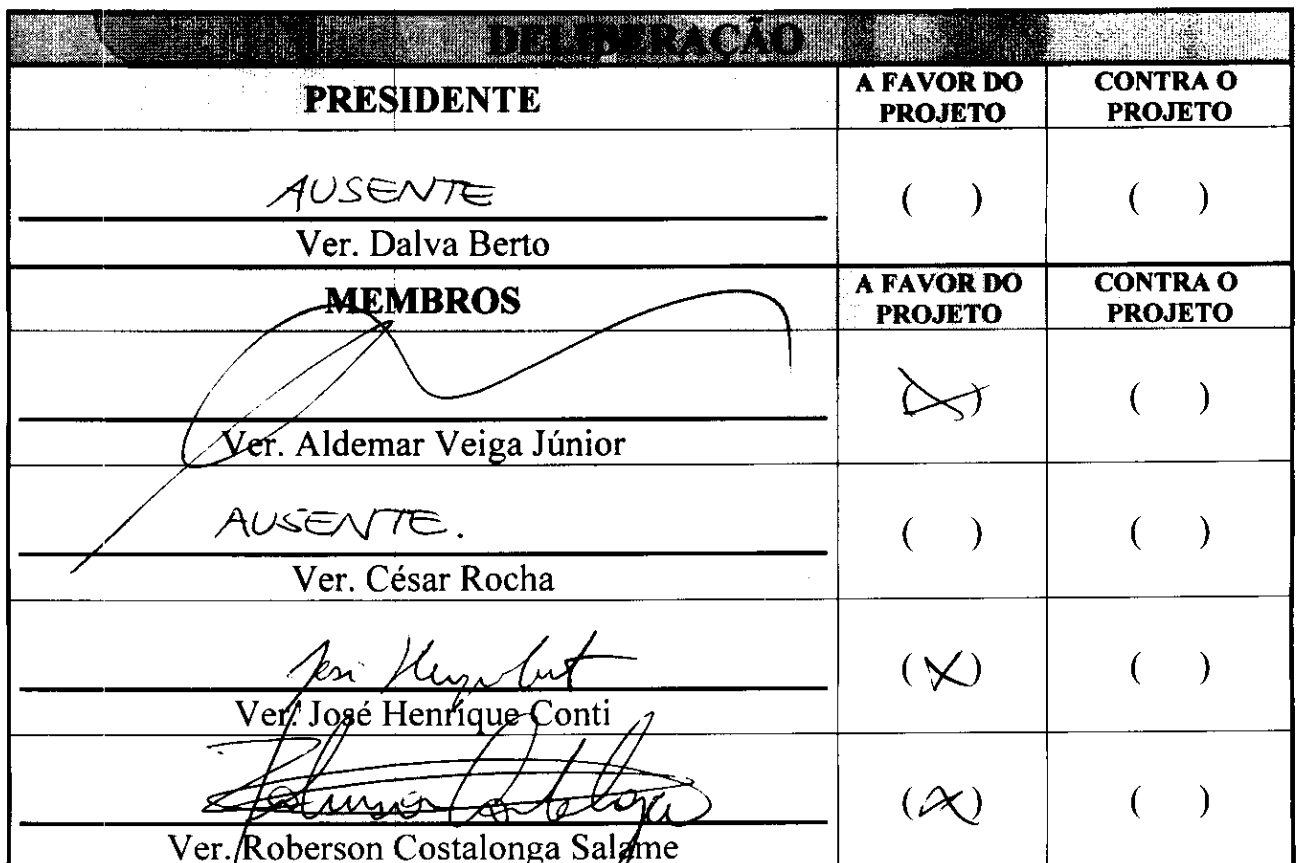 DELIBERAÇÃO
PRESIDENTE A FAVOR DO PROJETO CONTRA O PROJETO
AUSENTE ( ) ( )
Ver. Dalva Berto
MEMBROS A FAVOR DO PROJETO CONTRA O PROJETO
(X) ( )
Ver. Aldemar Veiga Júnior
AUSENTE. ( ) ( )
Ver. César Rocha
(X) ( )
Ver. José Henrique Conti
(X) ( )
Ver. Roberson Costalonga Salame